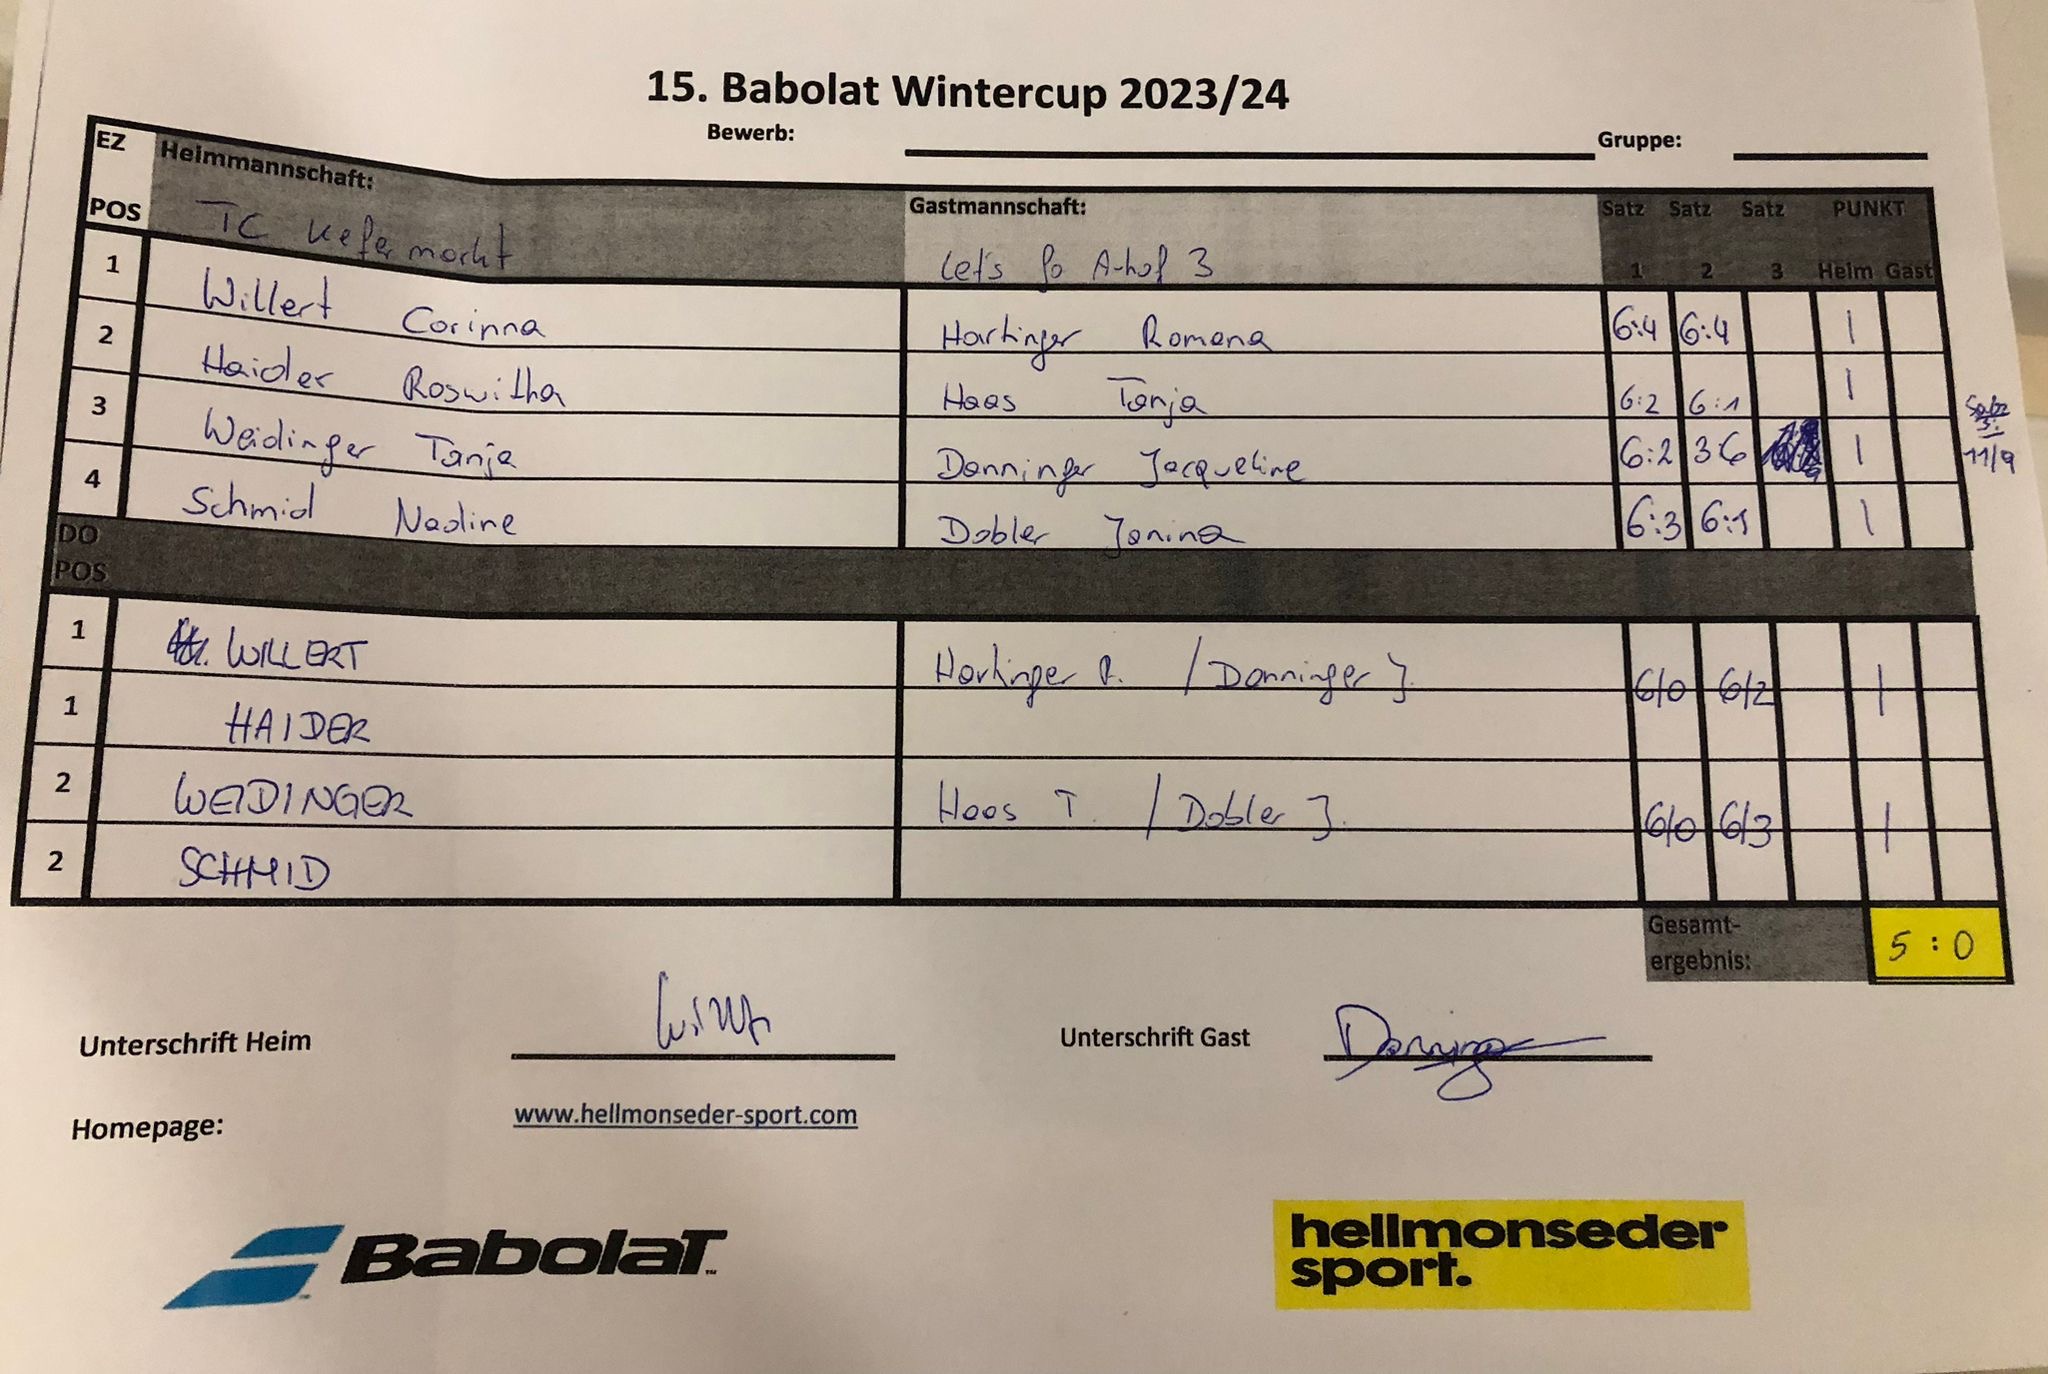 15. Babolat Wintercup 2023/24
Bewerb: Gruppe:
EZ POS Heimmannschaft: Gastmannschaft: Satz 1 Satz 2 Satz 3 PUNKT Heim Gast
TC Kefermarkt Let's go A-hof 3
1 Willert Corinna Hartinger Romana 6:4 6:4 1
2 Haider Roswitha Haas Tanja 6:2 6:1 1
3 Weidinger Tanja Danninger Jacqueline 6:2 3:6 1 Satz 3: 11/9
4 Schmid Nadine Dobler Janina 6:3 6:1 1
DO POS
1 WILLERT Hartinger R. / Danninger J. 6/0 6/2 1
1 HAIDER
2 WEIDINGER Haas T. / Dobler J. 6/0 6/3 1
2 SCHMID
Gesamt-
ergebnis: 5 : 0
Unterschrift Heim Unterschrift Gast Danninger
Homepage: www.hellmonseder-sport.com
BABOLAT
hellmonseder
sport.